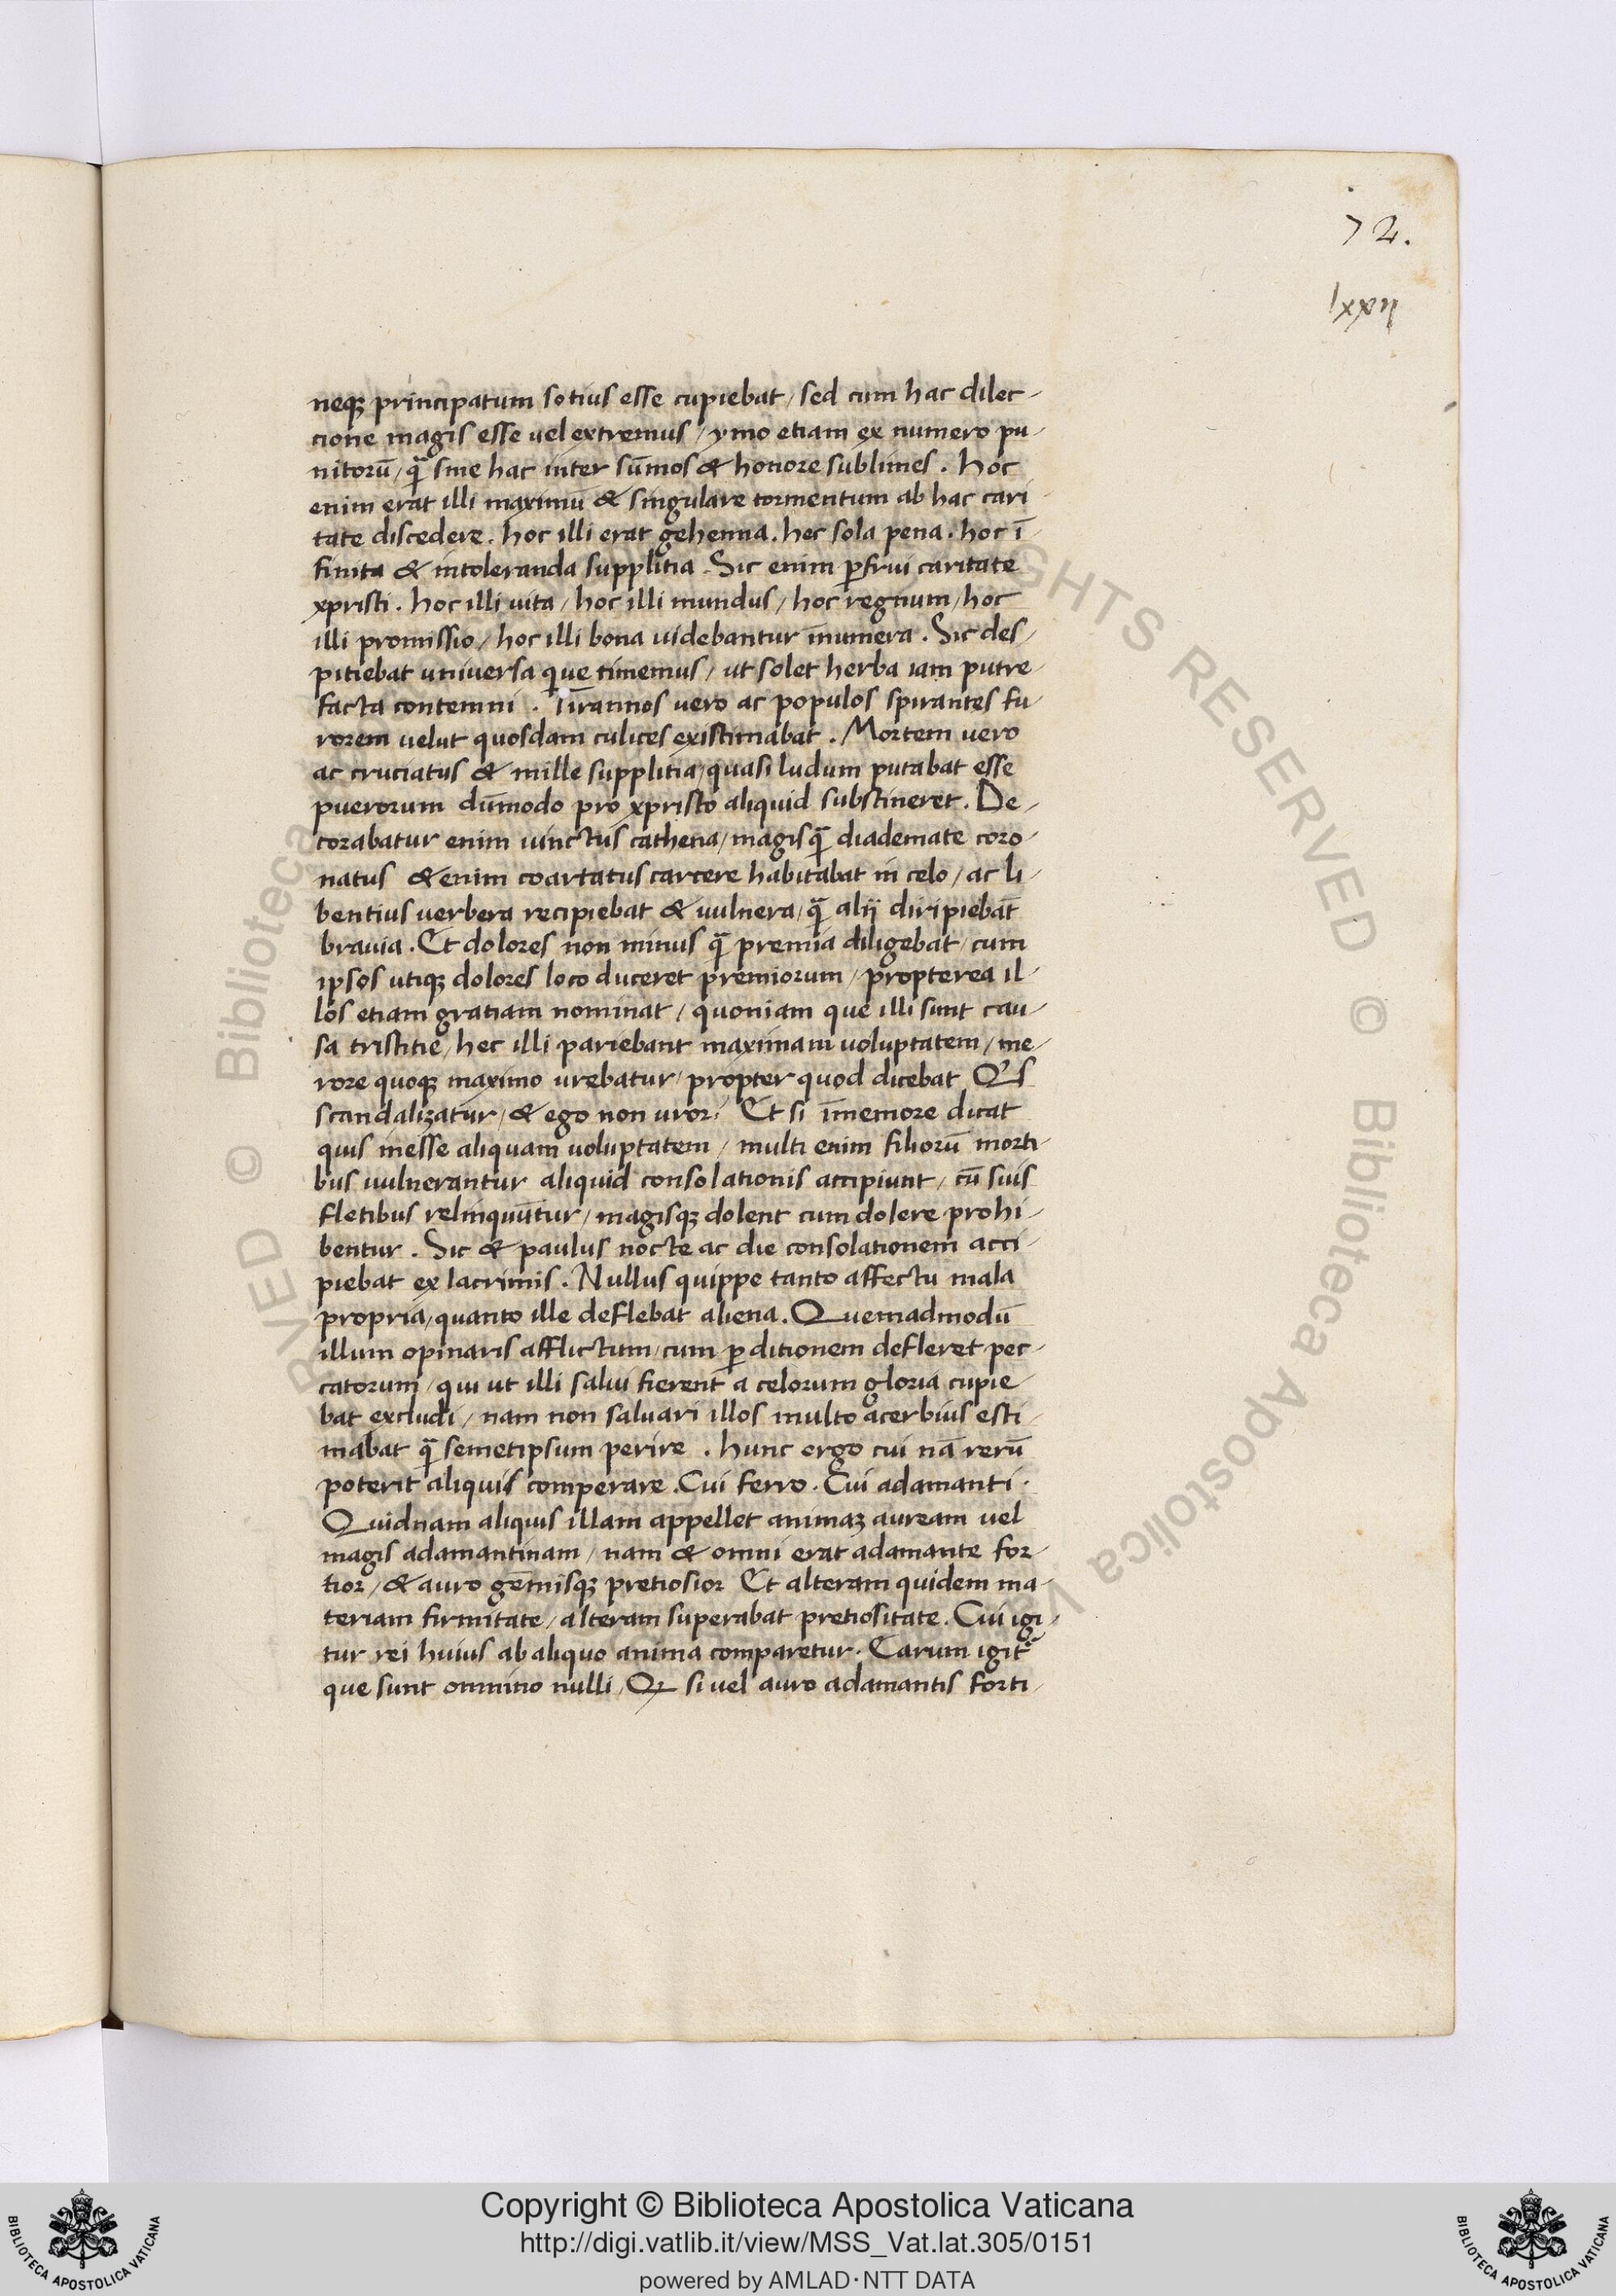 72.
lxxij
neqꝫ principatum sotius esse cupiebat / sed cum hac dilec-
cione magis esse uel extremus / ymo etiam ex numero pu-
nitorū / q̄ sine hac inter sūmos & honore sublimes . hoc
enim erat illi maximū & singulare tormentum ab hac cari-
tate discedere . hoc illi erat gehenna . hec sola pena . hoc ī-
finita & intoleranda supplitia . Sic enim ꝑfrui caritate
xpristi . hoc illi uita / hoc illi mundus / hoc regnum / hoc
illi promissio / hoc illi bona uidebantur īnumera . Sic des-
pitiebat universa que timemus / ut solet herba iam putre-
facta contemni . Tirannos uero ac populos spirantes fu-
rorem uelut quosdam culices existimabat . Mortem uero
ac cruciatus & mille supplitia / quasi ludum putabat esse
puerorum dūmodo pro xpristo aliquid substineret . De-
corabatur enim uinctus cathena / magis q̄ diademate coro-
natus & enim coartatus carcere habitabat in celo / ac li-
bentius uerbera recipiebat & uulnera / q̄ alij diripiebāt
brauia . Et dolores non minus q̄ premia diligebat / cum
ipsos utiqꝫ dolores loco duceret premiorum / propterea il-
los etiam gratiam nominat / quoniam que illi sunt cau-
sa tristitie / hec illi pariebant maximam uoluptatem / me-
rore quoqꝫ maximo urebatur / propter quod dicebat Qis
scandalizatur / & ego non uror? Et si īmemore dicat
quis inesse aliquam uoluptatem / multi enim filiorū morti-
bus uulnerantur aliquid consolationis accipiunt / cū suis
fletibus relinquūtur / magisqꝫ dolent cum dolere prohi-
bentur . Sic & paulus nocte ac die consolationem acci-
piebat ex lacrimis . Nullus quippe tanto affectu mala
propria / quanto ille deflebat aliena . Quemadmodū
illum opinaris afflictum / cum ꝑditionem defleret pec-
catorum / qui ut illi salui fierent a celorum gloria cupie-
bat excludi / nam non saluari illos multo acerbius esti-
mabat q̄ semetipsum perire . hunc ergo cui nā rerū
poterit aliquis comperare . Cui ferro . Cui adamanti .
Quidnam aliquis illam appellet animaꝫ auream uel
magis adamantinam / nam & omni erat adamante for-
tior / & auro gēmisqꝫ pretiosior Et alteram quidem ma-
teriam firmitate / alteram superabat pretiositate . Cui igi-
tur rei huius ab aliquo anima comparetur . Earum igit᷑
que sunt omnino nulli . Q si uel auro adamantis forti-
Copyright © Biblioteca Apostolica Vaticana
http://digi.vatlib.it/view/MSS_Vat.lat.305/0151
powered by AMLAD·NTT DATA
BIBLIOTECA APOSTOLICA VATICANA
BIBLIOTECA APOSTOLICA VATICANA